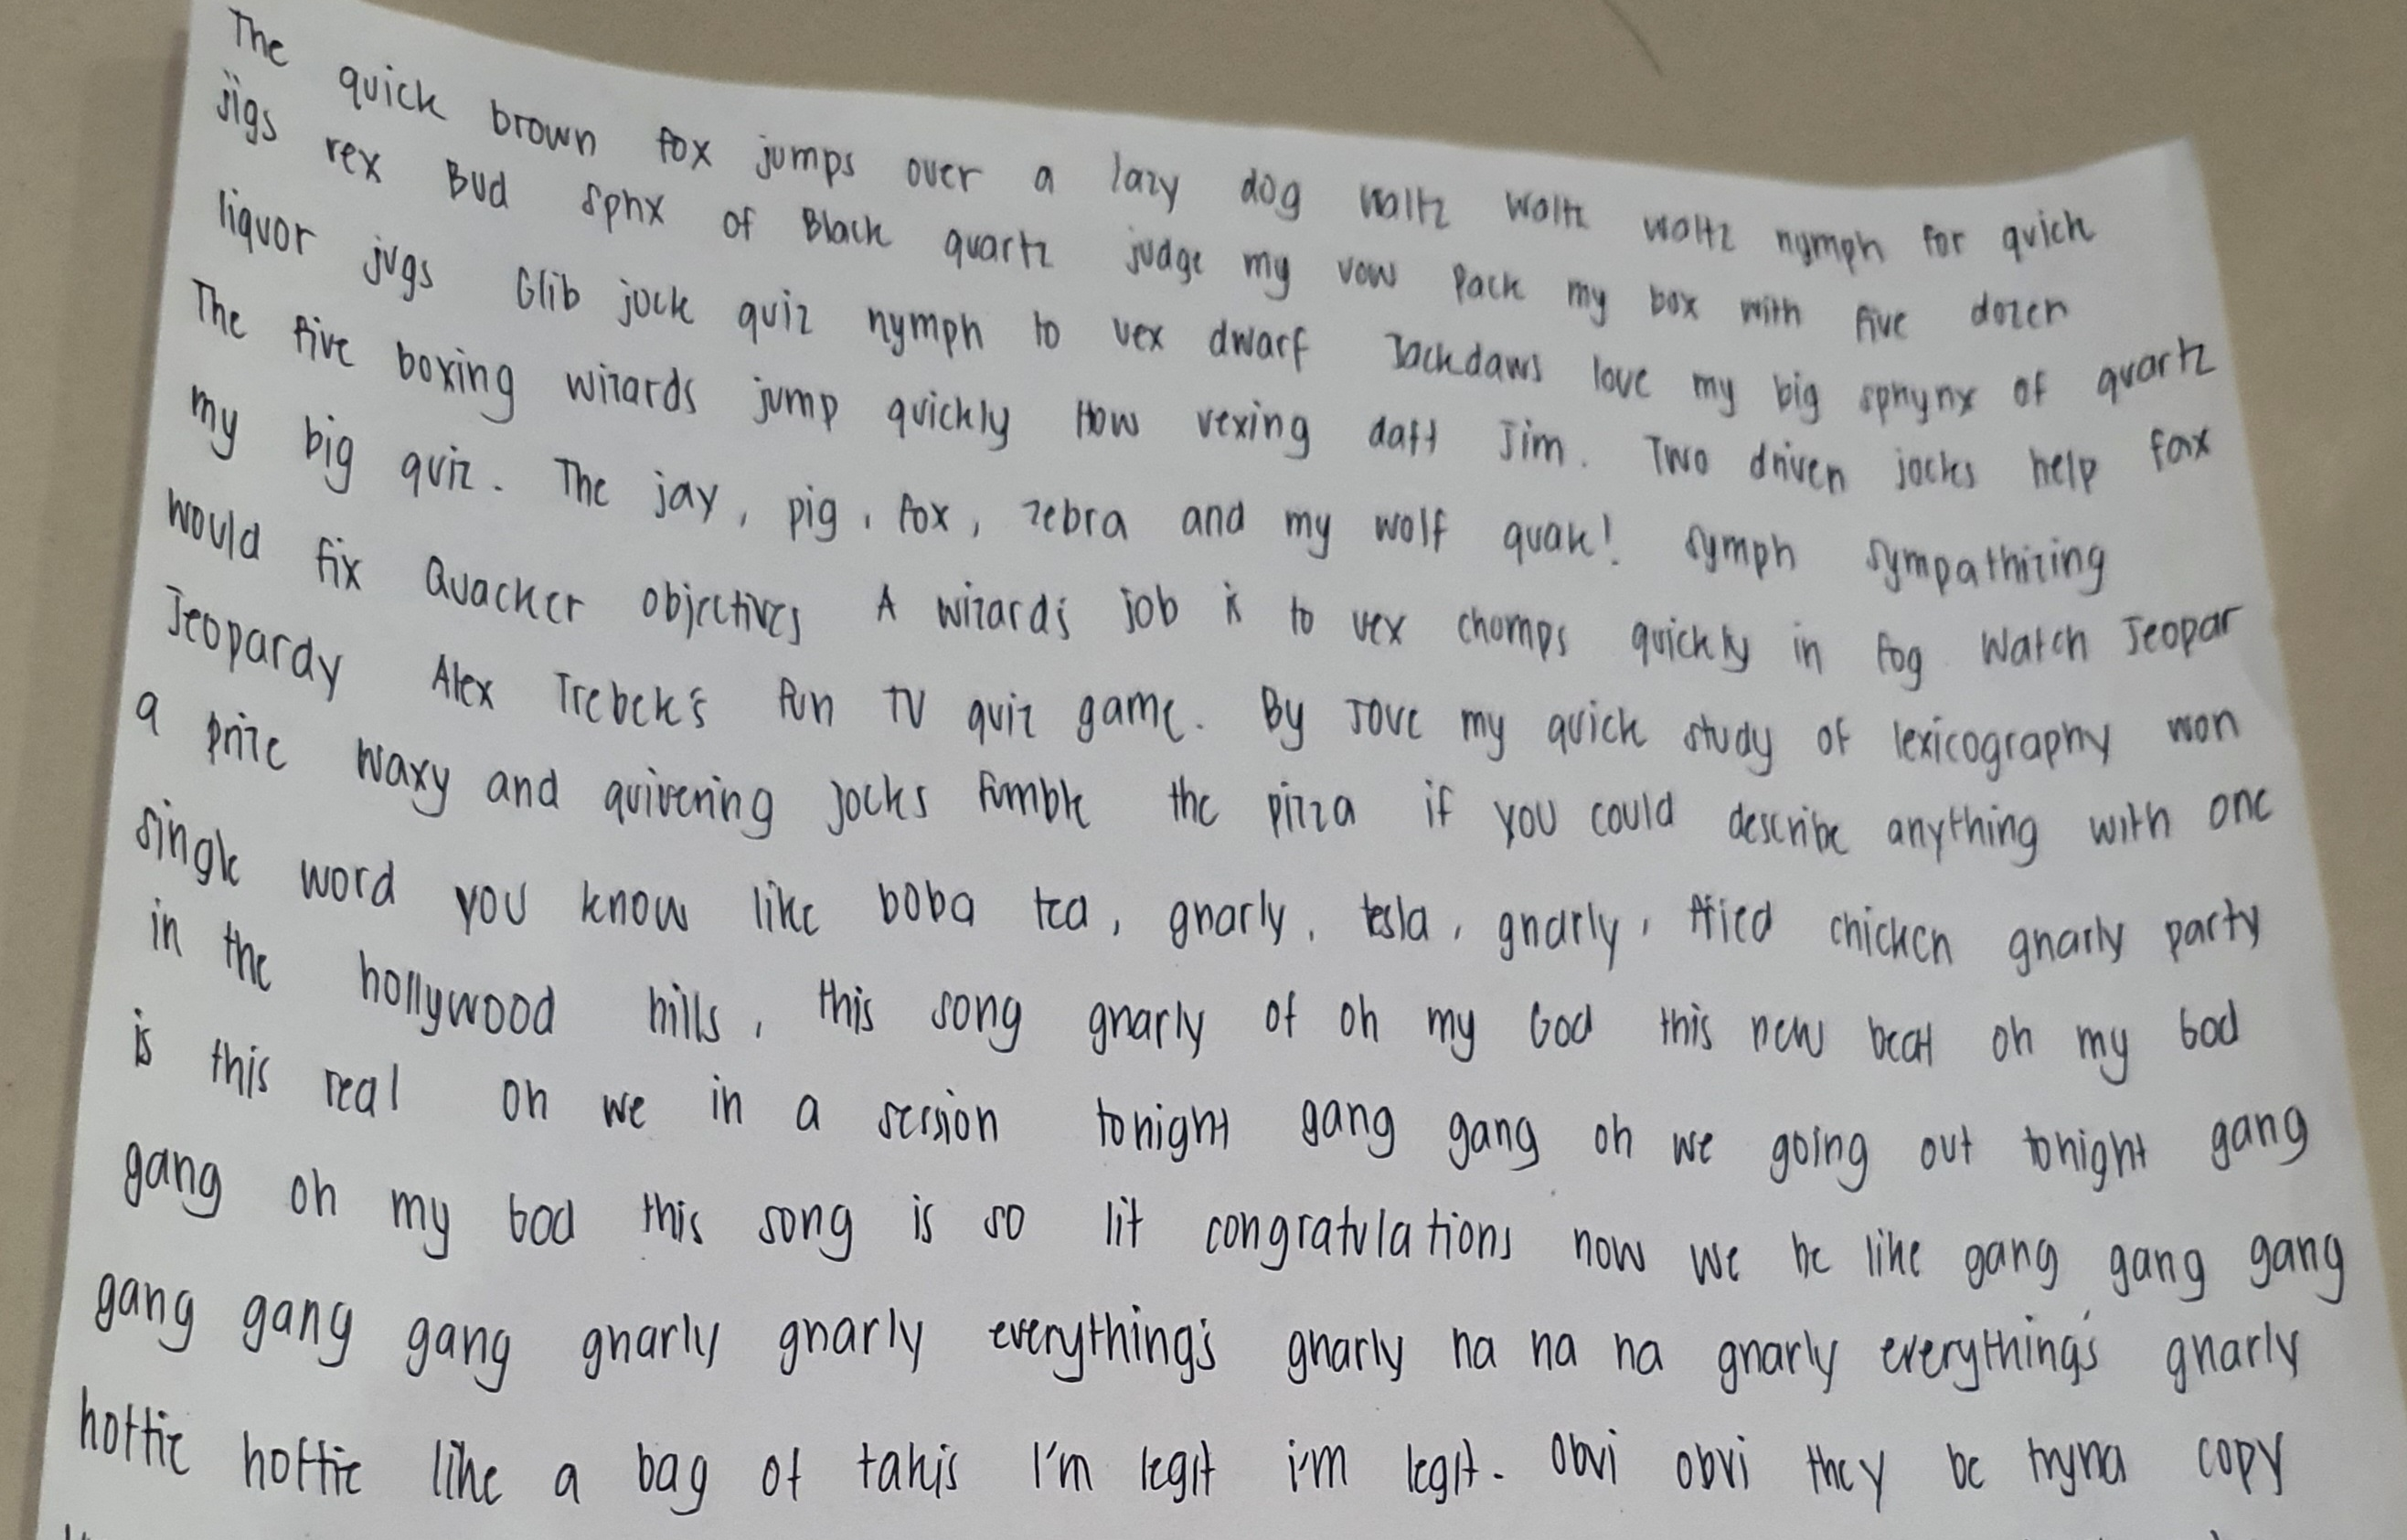 The quick brown fox jumps over a lazy dog waltz waltz waltz nymph for quick
jigs rex Bud sphx of Black quartz judge my vow Pack my box with five dozen
liquor jugs Glib jock quiz nymph to vex dwarf Jackdaws love my big sphynx of quartz
The five boxing wizards jump quickly How vexing daft Jim. Two driven jocks help fax
my big quiz. The jay, pig, fox, zebra and my wolf quak! symph sympathizing
would fix Quacker objectives A wizard's job is to vex chomps quickly in fog Watch Jeopar
Jeopardy Alex Trebek's fun TV quiz game. By Jove my quick study of lexicography won
a prize waxy and quivering jocks fumble the pizza if you could describe anything with one
single word you know like boba tea, gnarly, tesla, gnarly, fried chicken gnarly party
in the hollywood hills, this song gnarly of oh my God this new beat oh my God
is this real oh we in a session tonight gang gang oh we going out tonight gang
gang oh my God this song is so lit congratulations now we be like gang gang gang
gang gang gang gnarly gnarly everything's gnarly na na na gnarly everything's gnarly
hottie hottie like a bag of takis I'm legit i'm legit. Obvi obvi they be tryna copy